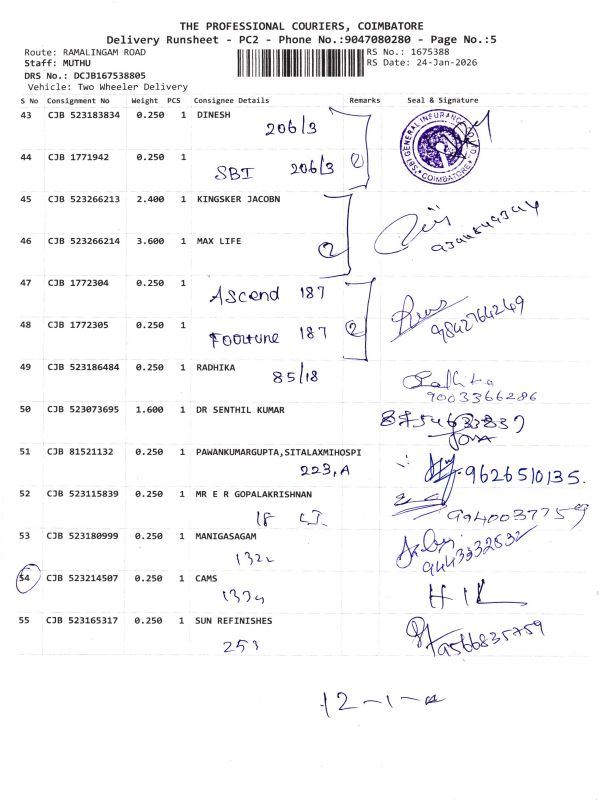 THE PROFESSIONAL COURIERS, COIMBATORE
Delivery Runsheet - PC2 - Phone No.:9047080280 - Page No.:5
Route: RAMALINGAM ROAD RS No.: 1675388
Staff: MUTHU RS Date: 24-Jan-2026
DRS No.: DCJB167538805
Vehicle: Two Wheeler Delivery
S No Consignment No Weight PCS Consignee Details Remarks Seal & Signature
43 CJB 523183834 0.250 1 DINESH
206/3
SBI GENERAL INSURANCE
COIMBATORE
44 CJB 1771942 0.250 1
SBI 206/3 2
45 CJB 523266213 2.400 1 KINGSKER JACOBN
46 CJB 523266214 3.600 1 MAX LIFE
2
47 CJB 1772304 0.250 1
Ascend 187
48 CJB 1772305 0.250 1
Foortune 187 2
9842764249
49 CJB 523186484 0.250 1 RADHIKA
85/18
9003366286
50 CJB 523073695 1.600 1 DR SENTHIL KUMAR
51 CJB 81521132 0.250 1 PAWANKUMARGUPTA,SITALAXMIHOSPI
223,A 9626510135.
52 CJB 523115839 0.250 1 MR E R GOPALAKRISHNAN
18
53 CJB 523180999 0.250 1 MANIGASAGAM
132
9443332532
54 CJB 523214507 0.250 1 CAMS
55 CJB 523165317 0.250 1 SUN REFINISHES
251 9566835759